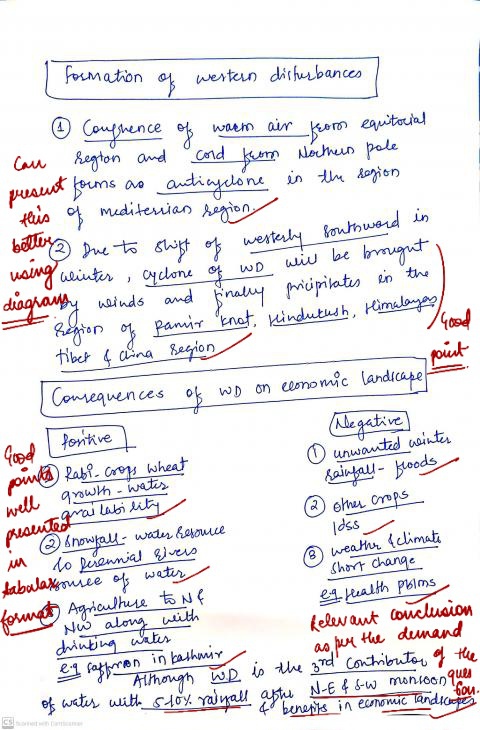 Formation of western disturbances
① Confluence of warm air from equitorial
region and cord from Northern pole
forms as anticyclone in the region
of mediterrian region.
Can
present
this
better
using
diagram
② Due to shift of westerly southword in
winter, cyclone of WD will be brought
by winds and finally pricipitates in the
region of Pamir knot, Hindukush, Himalayas
Tibet & China region
Good
point
Consequences of WD on economic landscape
Positive
① Rabi-crops wheat
growth - water
availability
② Snowfall - water resource
to perennial rivers
source of water
③ Agriculture to N &
NW along with
drinking water
e.g saffron in Kashmir
Good
points
well
presented
in
tabular
format
Negative
① unwanted winter
rainfall - floods
② other crops
loss
③ weather & climate
short change
e.g Health pblms
Relevant conclusion
as per the demand
of the
question.
Although WD is the 3rd contributor
of water with 5-10% rainfall after N-E & S-W monsoon
& benefits in economic landscapes
CS Scanned with CamScanner